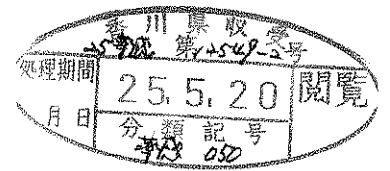 香川県収受
第12549-2号
処理期間
25.5.20
閲覧
月日
分類記号
050